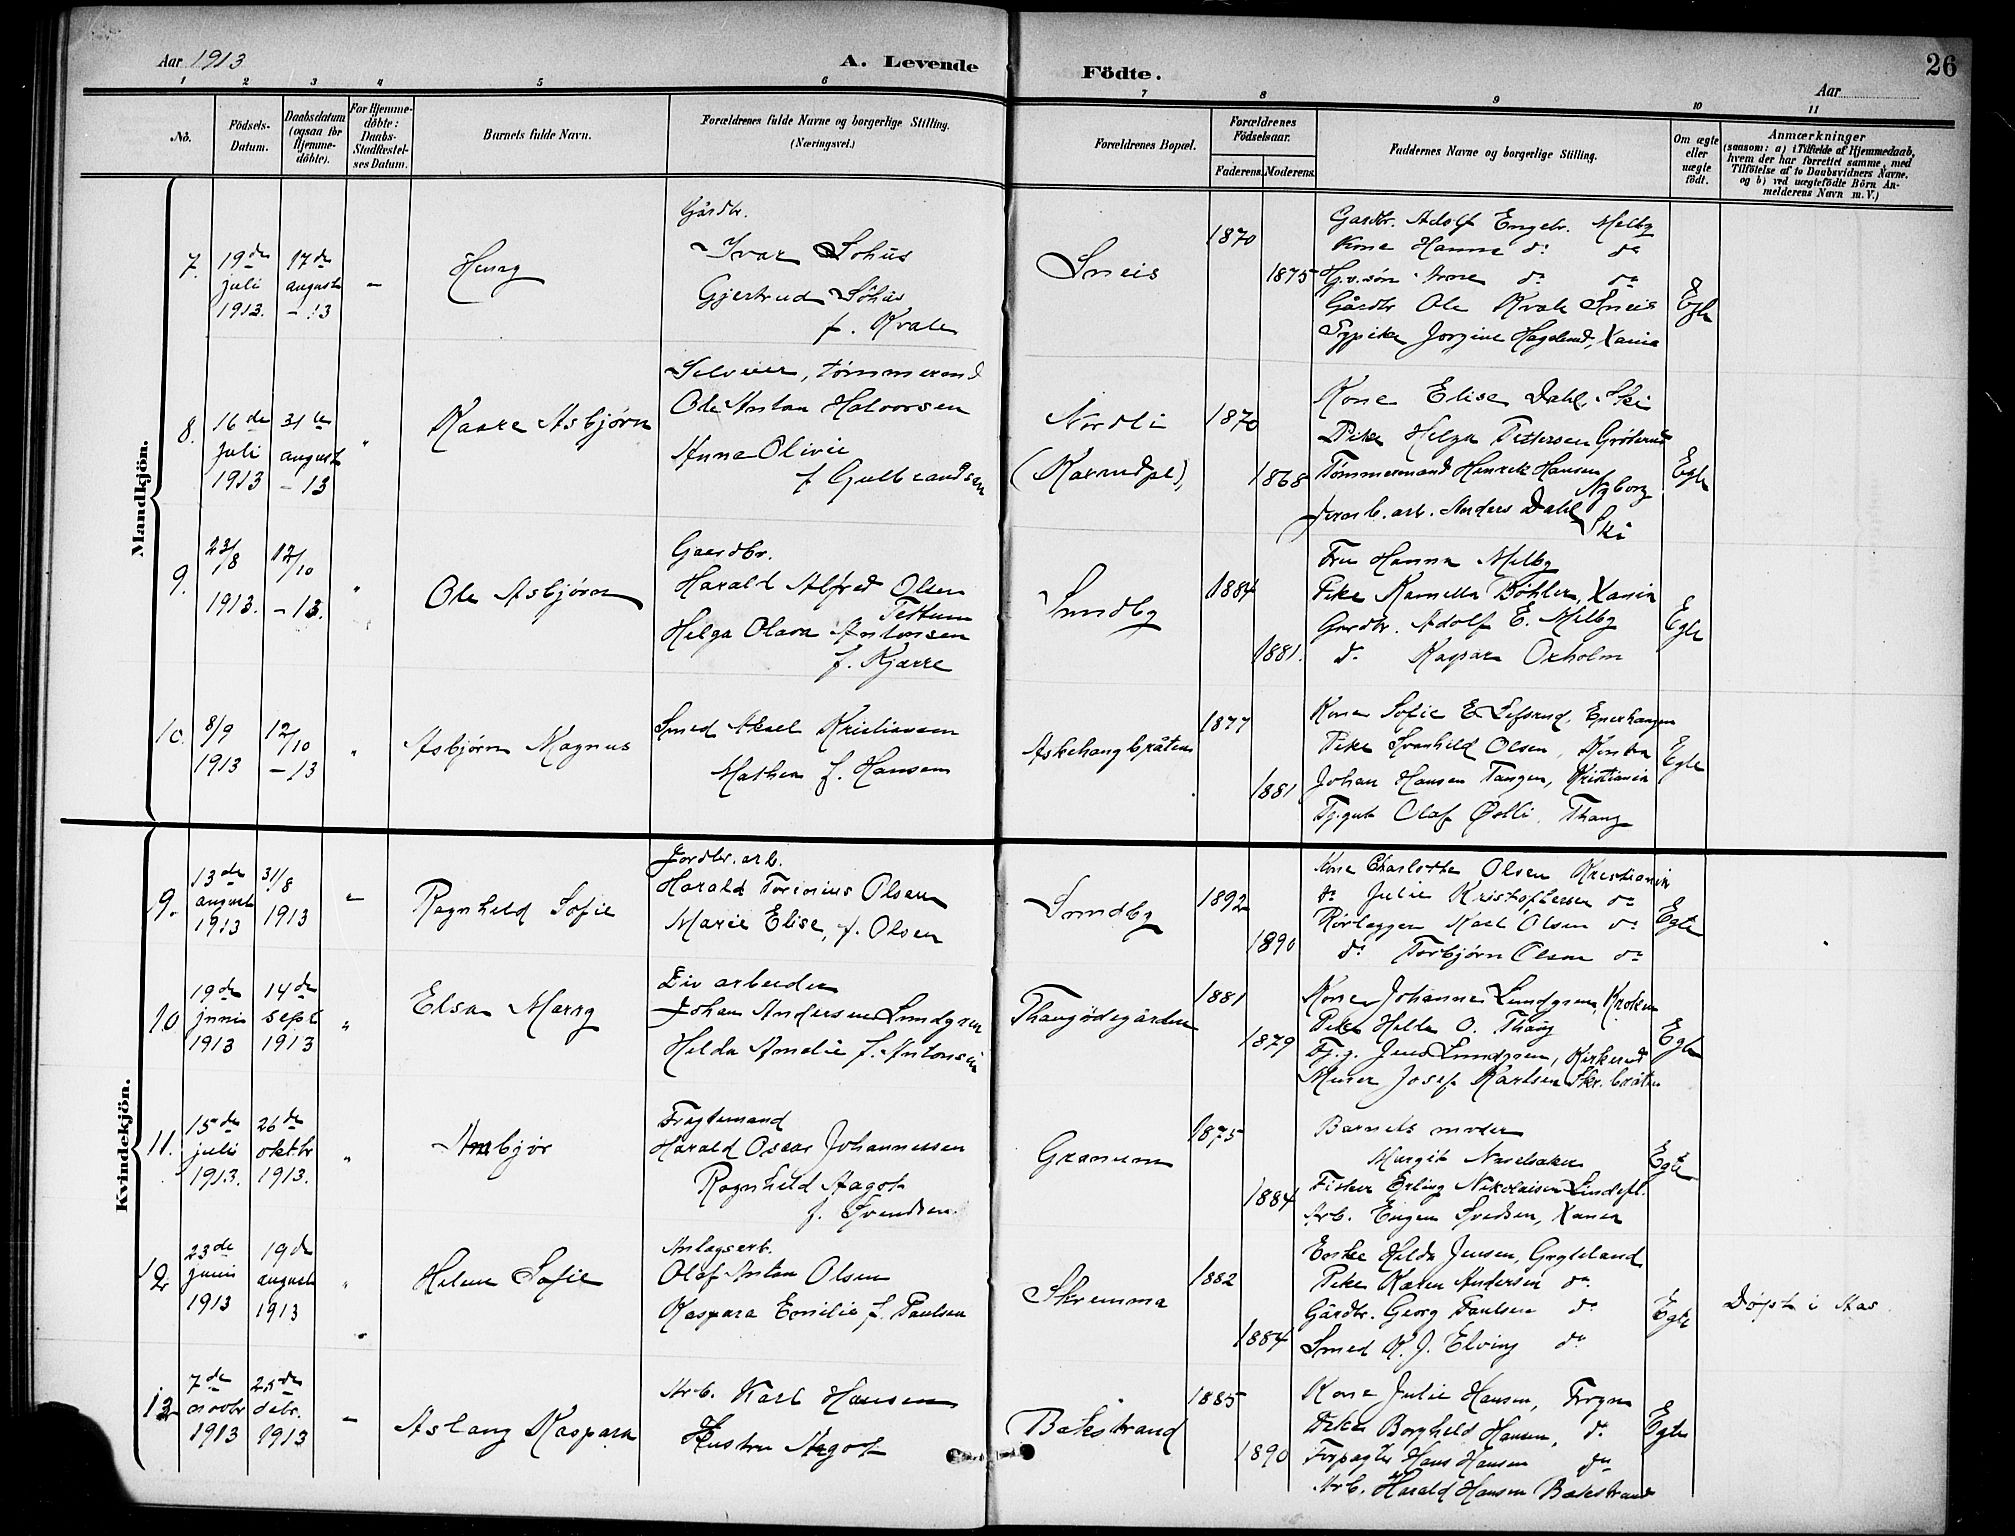 Aar 1913
A. Levende Födte.
26
Aar
1 2 3 4 5 6 7 8 9 10 11
No.
Födsels-Datum.
Daabsdatum (ogsaa for Hjemmedöbte).
For Hjemmedöbte: Daabs-Stadfæstelses Datum.
Barnets fulde Navn.
Forældrenes fulde Navne og borgerlige Stilling.
(Næringsvei.)
Forældrenes Bopæl.
Forældrenes Födselsaar.
Faderens. Moderens.
Faddernes Navne og borgerlige Stilling.
Om ægte eller uægte födt.
Anmærkninger
(saasom: a) i Tilfælde af Hjemmedaab, hvem der har forrettet samme, med Tilföielse af to Daabsvidners Navne. og b) ved uægtefödte Börn Anmelderens Navn m. V.)
Mandkjön.
7. 19de juli 1913. 17de august - 13
Gårdbr.
Ivar Sohus
Gjertrud Sohus
f. Kvale
Sneis
1870
1875
Gardbr. Adolf Engebr. Melby
Kone Hanna do do
Gårdbr Ole Kvale Sneis
Egte
8. 16de juli 1913 31te august - 13
Kaare Asbjørn
Selveier, tømmermd
Ole Anton Halvorsen
Anna Olivie
f Gulbrandsen
Nordli
1870
1868
Kone Elise Dahl, Ski
Pike Helga Pettersen
Tømmermand Henrik Hansen
Nyborg
Jernb. arb. Anders Dahl
Ski
Egte
9. 23/8 1913. 12/10 - 13.
Ole Asbjørn
Gaardbr.
Harald Alfred Olsen
Helga Olava Antonsen
f. Kjærre
Sundby
1884
1881.
Fru Hanna Melby
Pike Kamella Bøhler, Xania
Gardbr. Adolf E. Melby
do Kaspar Oxholm
Egte
10. 8/9 1913 12/10 - 13
Asbjørn Magnus
Smed Aksel Kristiansen
Mathea f. Hansen
Askehaugbråten
1877
1881
Pike Svanhild Olsen,
Johan Hansen Tangen, Kristiania
Tj.gut Olaf Østli, Thaug
Egte
Kvindekjön.
9. 13de august 1913 31/8 1913
Ragnhild Sofie
Jordbr. arb.
Harald Torinius Olsen
Marie Elise, f. Olsen
Sundby
1892
1890
Kone Charlotte Olsen Kristiania
do Julie Kristoffersen do
Rørlægger Karl Olsen do
do Torbjørn Olsen do
Egte
10 19de juni 1913 14de sept 1913
Elsa Marry
Div arbeider
Johan Andersen Lundgren
Hilda Amalie f. Antonsen
Thaugødegården
1881
1879
Kone Johanne Lundgren, Kroken
Pike Helle O. Thaug
Tj.g. Jens Lundgren, Kirkerud
Murer Josef Karlsen Skr. bråten
Egte
11. 15de juli 1913. 26de oktbr 1913.
Anbjør
Fragtemand
Harald Oscar Johannessen
Ragnhild Aagot
f. Svendsen.
Granum
1875
1884
Barnets moder
Margit Næselsaker
Fisker Erling Nikolaisen Lindepl.
Arb. Eugen Svedsen, Xania
Egte
12 23de juni 1913 19de august 1913
Helene Sofie
Anlægsarb.
Olaf Anton Olsen
Kaspara Emilie f. Paulsen
Skremma
1882
1884
Enke Hilda Jensen,
Pike Karen Andersen do
Gårdbr. Georg Paulsen do
Smed K. J. Elving do
Egte
Døpt i Aas.
13 7de novbr 1913 25de debr. 1913
Aslaug Kaspara
Arb. Karl Hansen
Hustru Aagot
Bakstrand
1885
1890
Kone Julie Hansen, Frogn
Pike Borghild Hansen, do
Forpagter Hans Hansen do
Arb. Harald Hansen Bakstrand
Egte